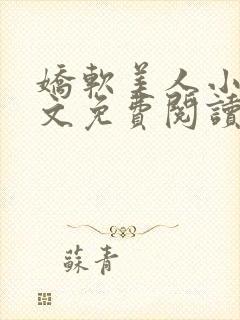 嬌軟美人小
文免費閱讀
蘇青